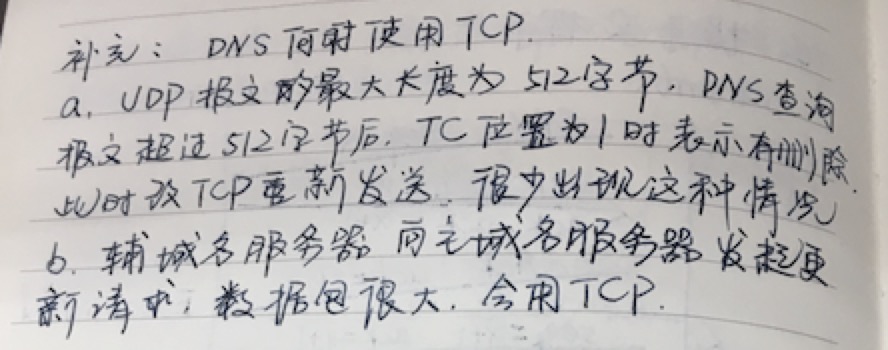 补充： DNS 何时使用TCP.
a. UDP 报文的最大长度为 512字节. DNS查询
报文超过512字节后. TC位置为1时表示有删除.
此时改TCP重新发送. 很少出现这种情况
b. 辅域名服务器 向主域名服务器发起更
新请求, 数据包很大. 会用TCP.